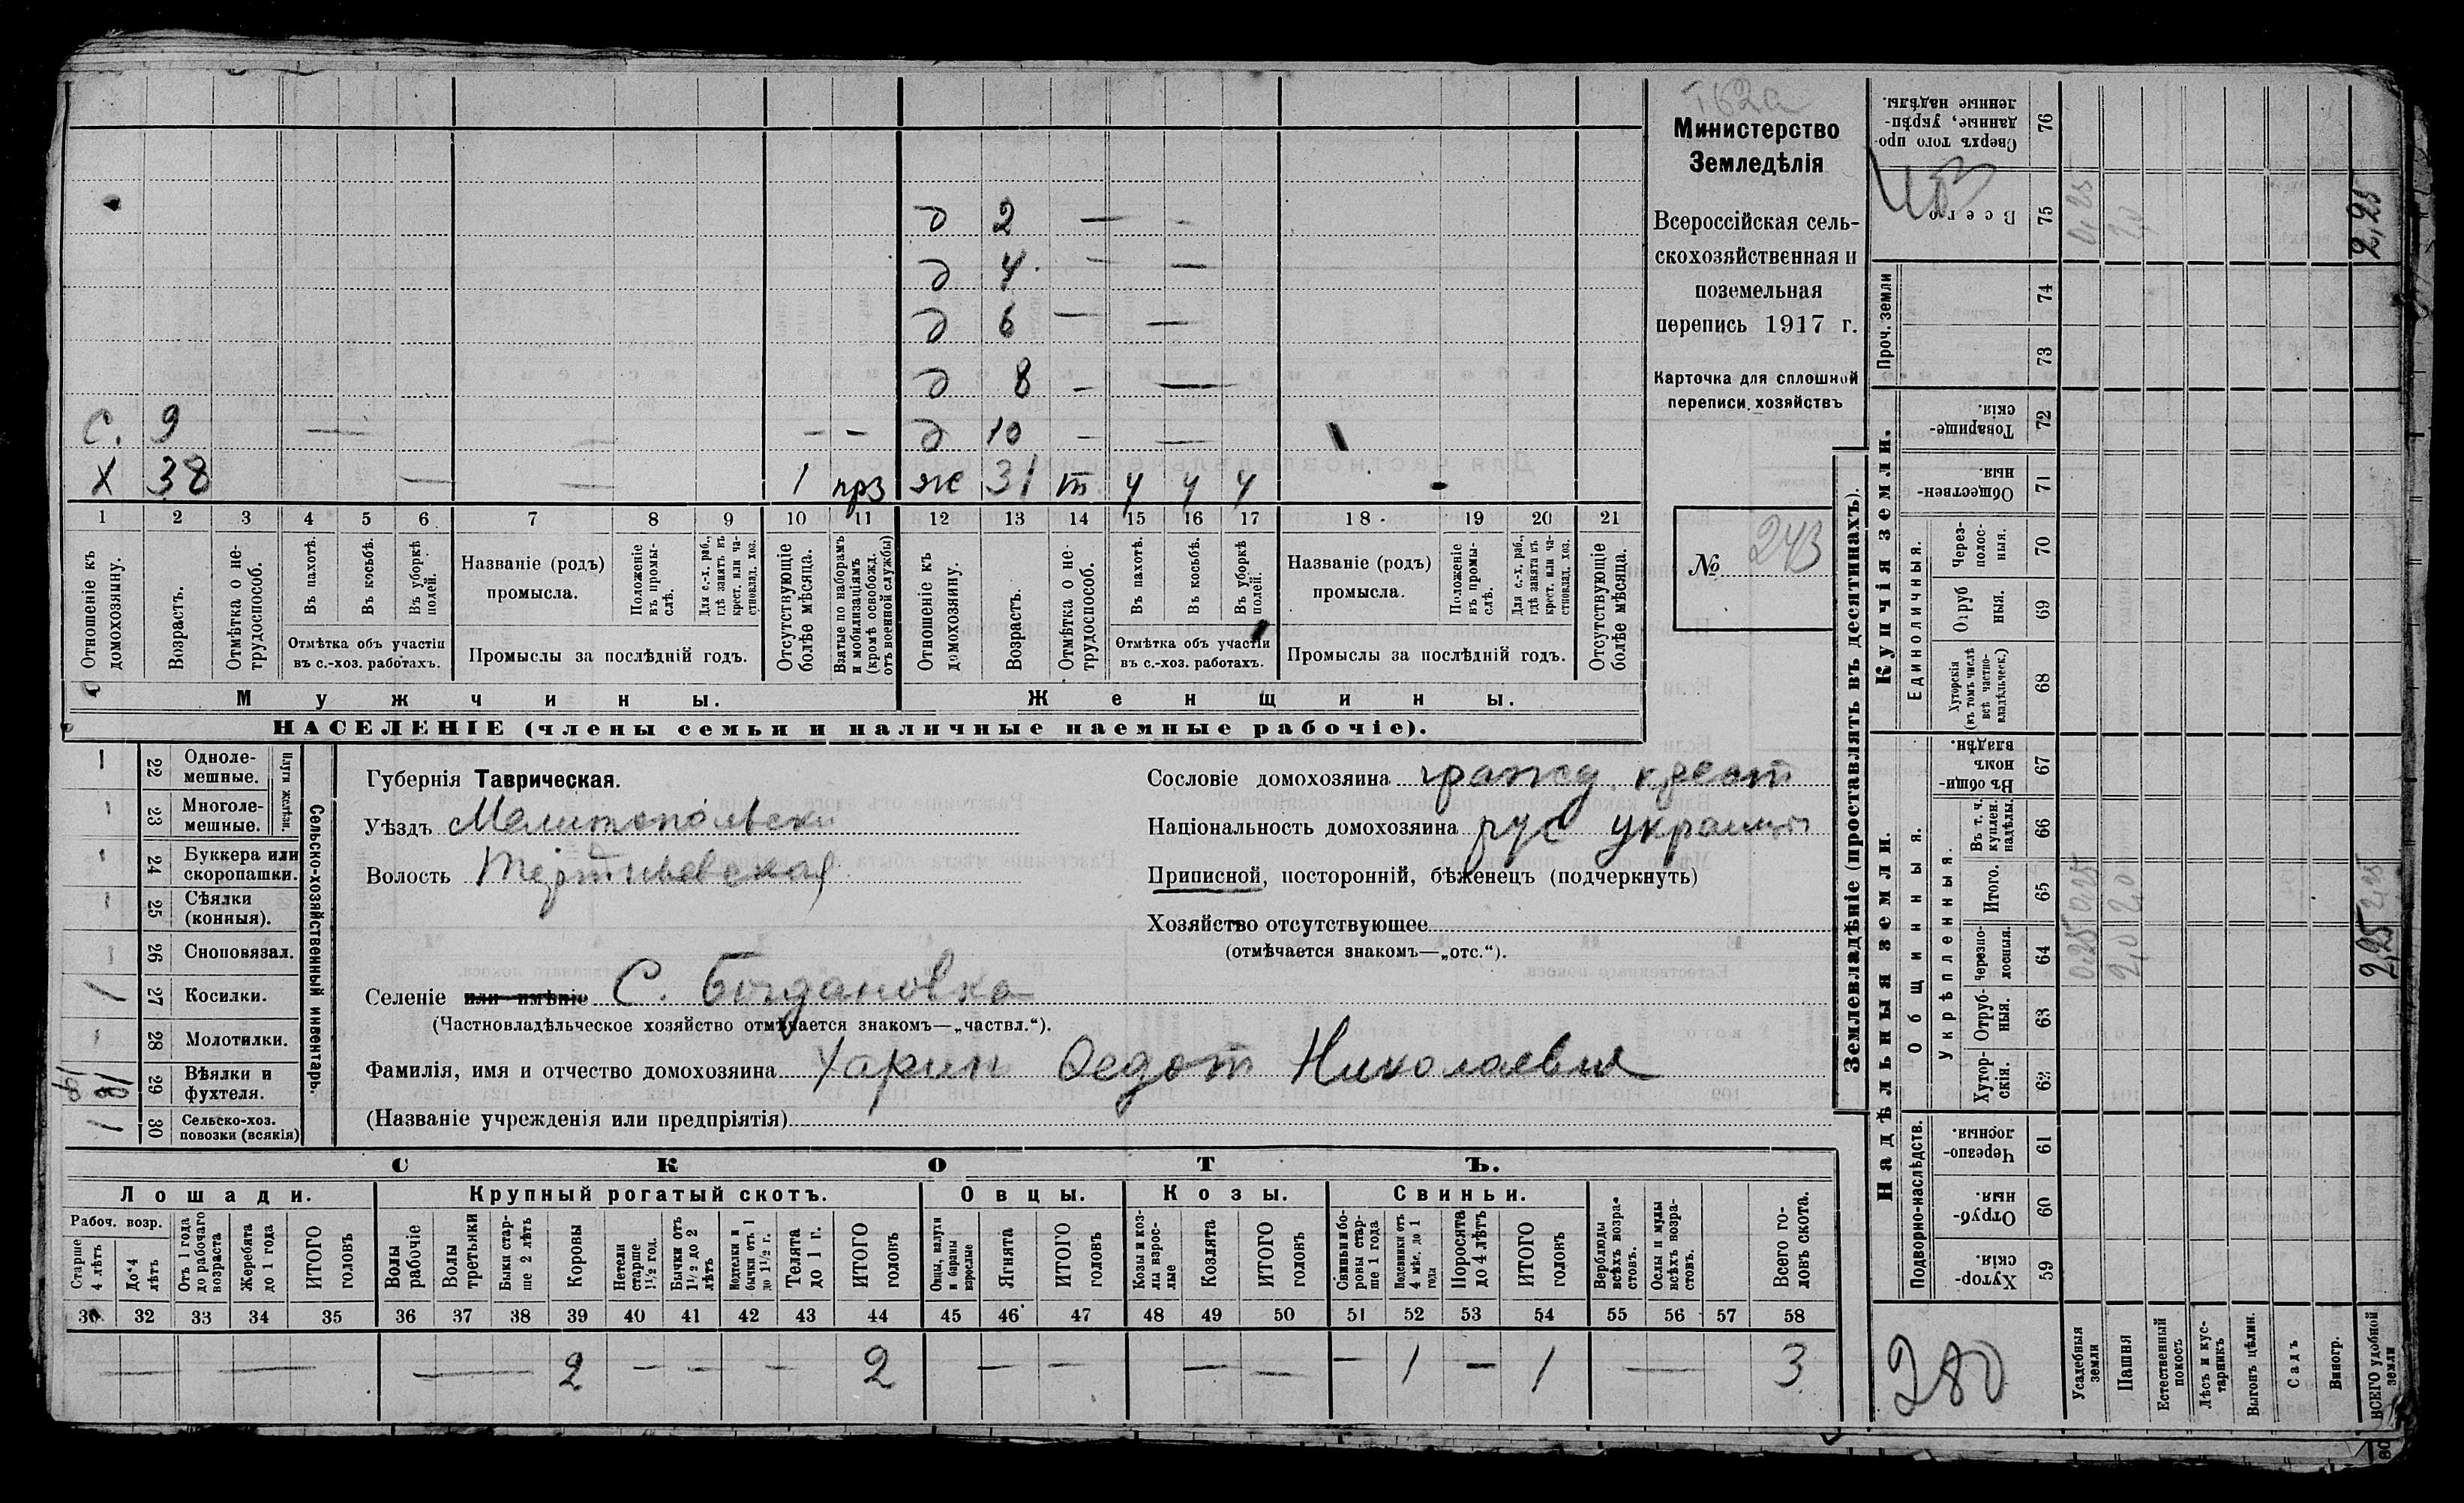 162а
Министерство
Земледѣлія
Всероссійская сель-
скохозяйственная и
поземельная
перепись 1917 г.
Карточка для сплошной
переписи хозяйствъ
№ 243
д 2 — -
д 4 - —
д 6 — —
д 8 - —
С. 9 — — — - - д 10 - —
Х 38 — — 1 прз ж 31 т ч ч ч -
1 2 3 4 5 6 7 8 9 10 11 12 13 14 15 16 17 18 19 20 21
Отношеніе къ домохозяину.
Возрастъ.
Отмѣтка о не-трудоспособ.
Въ пахотѣ.
Въ косьбѣ.
Въ уборкѣ полей.
Отмѣтка объ участіи въ с.-хоз. работахъ.
Названіе (родъ) промысла.
Положеніе въ промы-слѣ.
Для с.-х. раб., гдѣ занятъ въ крест. или ча-стновлад. хоз.
Промыслы за послѣдній годъ.
Отсутствующіе болѣе мѣсяца.
Взятые по наборамъ и мобилизаціямъ (кромѣ освобожд. отъ военной службы)
Отношеніе къ домохозяину.
Возрастъ.
Отмѣтка о не-трудоспособ.
Въ пахотѣ.
Въ косьбѣ.
Въ уборкѣ полей.
Отмѣтка объ участіи въ с.-хоз. работахъ.
Названіе (родъ) промысла.
Положеніе въ промы-слѣ.
Для с.-х. раб., гдѣ занята въ крест. или ча-стновлад. хоз.
Промыслы за послѣдній годъ.
Отсутствующіе болѣе мѣсяца.
Мужчины.
Женщины.
НАСЕЛЕНІЕ (члены семьи и наличные наемные рабочіе).
Сельско-хозяйственный инвентарь.
Плуги желѣзн.
22 Одноле-мешные.
23 Многоле-мешные.
24 Буккера или скоропашки.
25 Сѣялки (конныя).
26 Сноповязал.
27 Косилки. /
28 Молотилки.
29 Вѣялки и фухтеля.
30 Сельско-хоз. повозки (всякія) 1
Губернія Таврическая.
Уѣздъ Мелитопольски
Волость
Селеніе или имѣніе С. Богдановка
(Частновладѣльческое хозяйство отмѣчается знакомъ—„частвл.“).
Фамилія, имя и отчество домохозяина Харин Федот Николаевич
(Названіе учрежденія или предпріятія)
Сословіе домохозяина гражд. крест
Національность домохозяина рус украинц
Приписной, посторонній, бѣженецъ (подчеркнуть)
Хозяйство отсутствующее
(отмѣчается знакомъ—„отс.“).
СКОТЪ.
Лошади. Крупный рогатый скотъ. Овцы. Козы. Свиньи.
Рабоч. возр.
Старше 4 лѣтъ
До 4 лѣтъ
Отъ 1 года до рабочаго возраста
Жеребята до 1 года
ИТОГО головъ
Волы рабочіе
Волы третьяки
Быки стар-ше 2 лѣтъ
Коровы
Нетели старше 1½ год.
Бычки отъ 1½ до 2 лѣтъ
Нетелки и бычки отъ 1 до 1½ г.
Телята до 1 г.
ИТОГО головъ
Овцы, валухи и бараны взрослые
Ягнята
ИТОГО головъ
Козы и коз-лы взрос-лые
Козлята
ИТОГО головъ
Свиньи и бо-ровы стар-ше 1 года
Подсвинки отъ 4 мѣс. до 1 года
Поросята до 4 лѣтъ
ИТОГО головъ
Верблюды всѣхъ возра-стовъ.
Ослы и мулы всѣхъ возра-стовъ.
Всего го-ловъ скота.
32 33 34 35 36 37 38 39 40 41 42 43 44 45 46 47 48 49 50 51 52 53 54 55 56 57 58
— — — 2 - - - 2 — — — — - 1 - 1 — 3
Землевладѣніе (проставлять въ десятинахъ).
Купчія земли.
Надѣльныя земли.
Сверхъ того про-данные, укрѣп-ленные надѣлы. 76
Всего 75 0,25 2,0 2,25
403
Проч. земли 74 73
Товарище-скія. 72
Обществен-ныя. 71
Единоличныя.
Через-полос-ныя. 70
Отруб-ныя. 69
Хуторскія (въ томъ числѣ всѣ частно-владѣльческ.) 68
Общинныя.
Въ общи-номъ владѣн. 67
Укрѣпленныя.
Въ т. ч. куплен. надѣлы. 66
Итого. 65 0,25 2,0 2,25
Черезпо-лосныя. 64 0,25 2,0 2,25
Отруб-ныя. 63
Хутор-скія. 62
Подворно-наслѣдств.
Черезпо-лосныя. 61
Отруб-ныя. 60
Хутор-скія. 59
280
Усадебныя земли
Пашня
Естественный покосъ
Лѣсъ и кус-тарникъ
Выгонъ цѣлин.
Садъ
Виногр.
ВСЕГО удобной земли